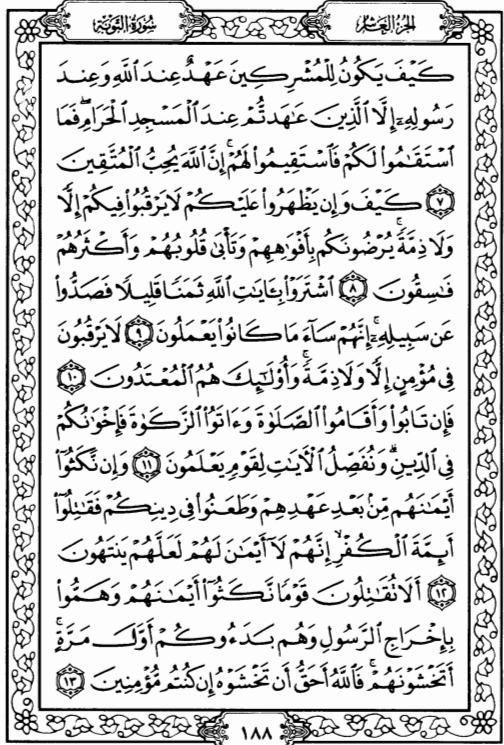 سُورَةُ التَّوْبَةِ
الجُزْءُ العَاشِرُ
كَيْفَ يَكُونُ لِلْمُشْرِكِينَ عَهْدٌ عِندَ اللَّهِ وَعِندَ
رَسُولِهِۦٓ إِلَّا الَّذِينَ عَٰهَدتُّمْ عِندَ الْمَسْجِدِ الْحَرَامِ ۖ فَمَا
اسْتَقَٰمُوا۟ لَكُمْ فَاسْتَقِيمُوا۟ لَهُمْ ۚ إِنَّ اللَّهَ يُحِبُّ الْمُتَّقِينَ
٧ كَيْفَ وَإِن يَظْهَرُوا۟ عَلَيْكُمْ لَا يَرْقُبُوا۟ فِيكُمْ إِلًّا
وَلَا ذِمَّةً ۚ يُرْضُونَكُم بِأَفْوَٰهِهِمْ وَتَأْبَىٰ قُلُوبُهُمْ وَأَكْثَرُهُمْ
فَٰسِقُونَ ٨ اشْتَرَوْا۟ بِـَٔايَٰتِ اللَّهِ ثَمَنًا قَلِيلًا فَصَدُّوا۟
عَن سَبِيلِهِۦٓ ۚ إِنَّهُمْ سَآءَ مَا كَانُوا۟ يَعْمَلُونَ ٩ لَا يَرْقُبُونَ
فِى مُؤْمِنٍ إِلًّا وَلَا ذِمَّةً ۚ وَأُو۟لَٰٓئِكَ هُمُ الْمُعْتَدُونَ ١٠
فَإِن تَابُوا۟ وَأَقَامُوا۟ الصَّلَوٰةَ وَءَاتَوُا۟ الزَّكَوٰةَ فَإِخْوَٰنُكُمْ
فِى الدِّينِ ۗ وَنُفَصِّلُ الْـَٔايَٰتِ لِقَوْمٍ يَعْلَمُونَ ١١ وَإِن نَّكَثُوٓا۟
أَيْمَٰنَهُم مِّنۢ بَعْدِ عَهْدِهِمْ وَطَعَنُوا۟ فِى دِينِكُمْ فَقَٰتِلُوٓا۟
أَئِمَّةَ الْكُفْرِ ۙ إِنَّهُمْ لَآ أَيْمَٰنَ لَهُمْ لَعَلَّهُمْ يَنتَهُونَ
١٢ أَلَا تُقَٰتِلُونَ قَوْمًا نَّكَثُوٓا۟ أَيْمَٰنَهُمْ وَهَمُّوا۟
بِإِخْرَاجِ الرَّسُولِ وَهُم بَدَءُوكُمْ أَوَّلَ مَرَّةٍ ۚ
أَتَخْشَوْنَهُمْ ۚ فَاللَّهُ أَحَقُّ أَن تَخْشَوْهُ إِن كُنتُم مُّؤْمِنِينَ ١٣
١٨٨